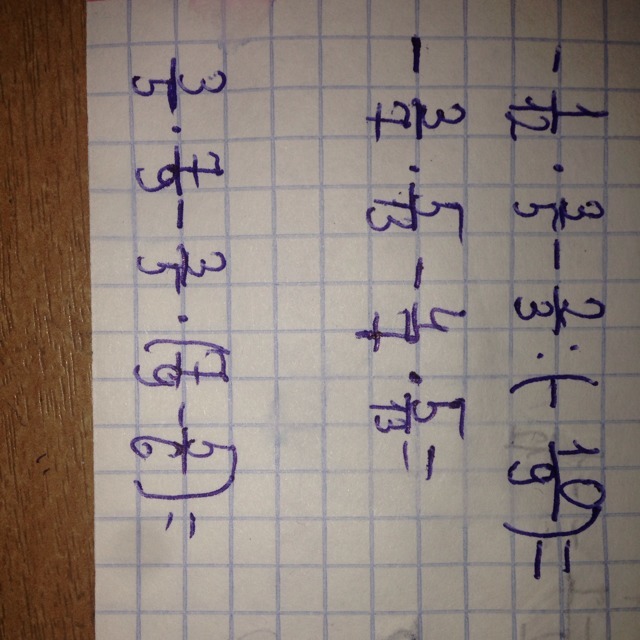 - 1/12 · 3/5 - 2/3 · (- 10/9) =
- 3/7 · 5/13 - 4/7 · 5/13 =
3/5 · 7/9 - 3/5 · (7/9 - 5/6) =